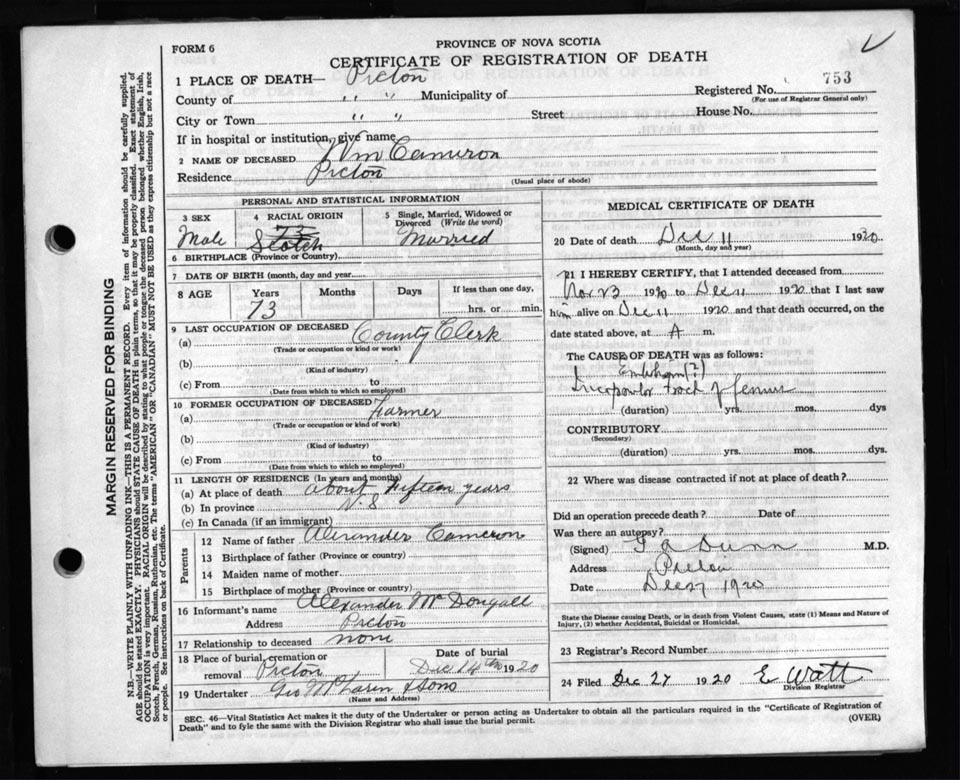 FORM 6
PROVINCE OF NOVA SCOTIA
CERTIFICATE OF REGISTRATION OF DEATH
1 PLACE OF DEATH— Pictou
753
County of " " Municipality of
Registered No.
(For use of Registrar General only)
City or Town " " Street House No.
If in hospital or institution, give name
2 NAME OF DECEASED Wm Cameron
Residence Pictou
(Usual place of abode)
PERSONAL AND STATISTICAL INFORMATION
3 SEX
Male
4 RACIAL ORIGIN
73
Scotch
5 Single, Married, Widowed or
Divorced (Write the word)
Married
6 BIRTHPLACE (Province or Country)
7 DATE OF BIRTH (month, day and year
8 AGE
Years
73
Months
Days
If less than one day,
hrs. or min.
9 LAST OCCUPATION OF DECEASED
(a) County Clerk
(Trade or occupation or kind or work)
(b)
(Kind of industry)
(c) From to
(Date from which to which so employed)
10 FORMER OCCUPATION OF DECEASED
(a) Farmer
(Trade or occupation or kind of work)
(b)
(Kind of industry)
(c) From to
(Date from which to which so employed)
11 LENGTH OF RESIDENCE (In years and months)
(a) At place of death about fifteen years
(b) In province N.S
(c) In Canada (if an immigrant)
Parents
12 Name of father Alexander Cameron
13 Birthplace of father (Province or country)
14 Maiden name of mother
15 Birthplace of mother (Province or Country)
16 Informant's name Alexander McDougall
Address Pictou
17 Relationship to deceased none
18 Place of burial, cremation or
removal Pictou
Date of burial
Dec 14th 1920
19 Undertaker Geo McLaren & Sons
(Name and Address)
MEDICAL CERTIFICATE OF DEATH
20 Date of death Dec 11 1920
(Month, day and year)
21 I HEREBY CERTIFY, that I attended deceased from
Nov 23 1920 to Dec 11 1920 that I last saw
him alive on Dec 11 1920 and that death occurred, on the
date stated above, at A m.
The CAUSE OF DEATH was as follows:
(?)
of femur
(duration) yrs. mos. dys
CONTRIBUTORY
(Secondary)
(duration) yrs. mos. dys.
22 Where was disease contracted if not at place of death?
Did an operation precede death? Date of
Was there an autopsy?
(Signed) G A Dunn M.D.
Address Pictou
Date Dec 1920
State the Disease causing Death, or in death from Violent Causes, state (1) Means and Nature of
Injury, (2) whether Accidental, Suicidal or Homicidal.
23 Registrar's Record Number
24 Filed Dec 27 1920 E Watt
Division Registrar
SEC. 46—Vital Statistics Act makes it the duty of the Undertaker or person acting as Undertaker to obtain all the particulars required in the "Certificate of Registration of
Death" and to fyle the same with the Division Registrar who shall issue the burial permit.
(OVER)
MARGIN RESERVED FOR BINDING
N.B.—WRITE PLAINLY WITH UNFADING INK—THIS IS A PERMANENT RECORD. Every item of information should be carefully supplied.
AGE should be stated EXACTLY. PHYSICIANS should STATE CAUSE OF DEATH in plain terms, so that it may be properly classified. Exact statement of
OCCUPATION is very important. RACIAL ORIGIN will be described by stating to what people or tongue the deceased person belonged whether English, Irish,
Scotch, French, German, Russian, Ruthenian, etc. The terms "AMERICAN" OR "CANADIAN" MUST NOT BE USED as they express citizenship but not a race
or people. See instructions on back of Certificate.